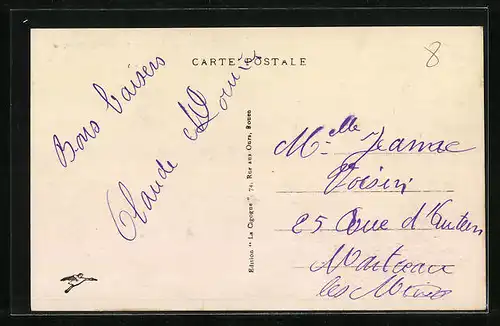 CARTE POSTALE
8
Bons baisers
Claude Louis
Edition "La Cigogne" 74, Rue aux Ours, Rouen
Melle Jeanne
Voisin
25 Rue d'Autun
Montceau
les Mines